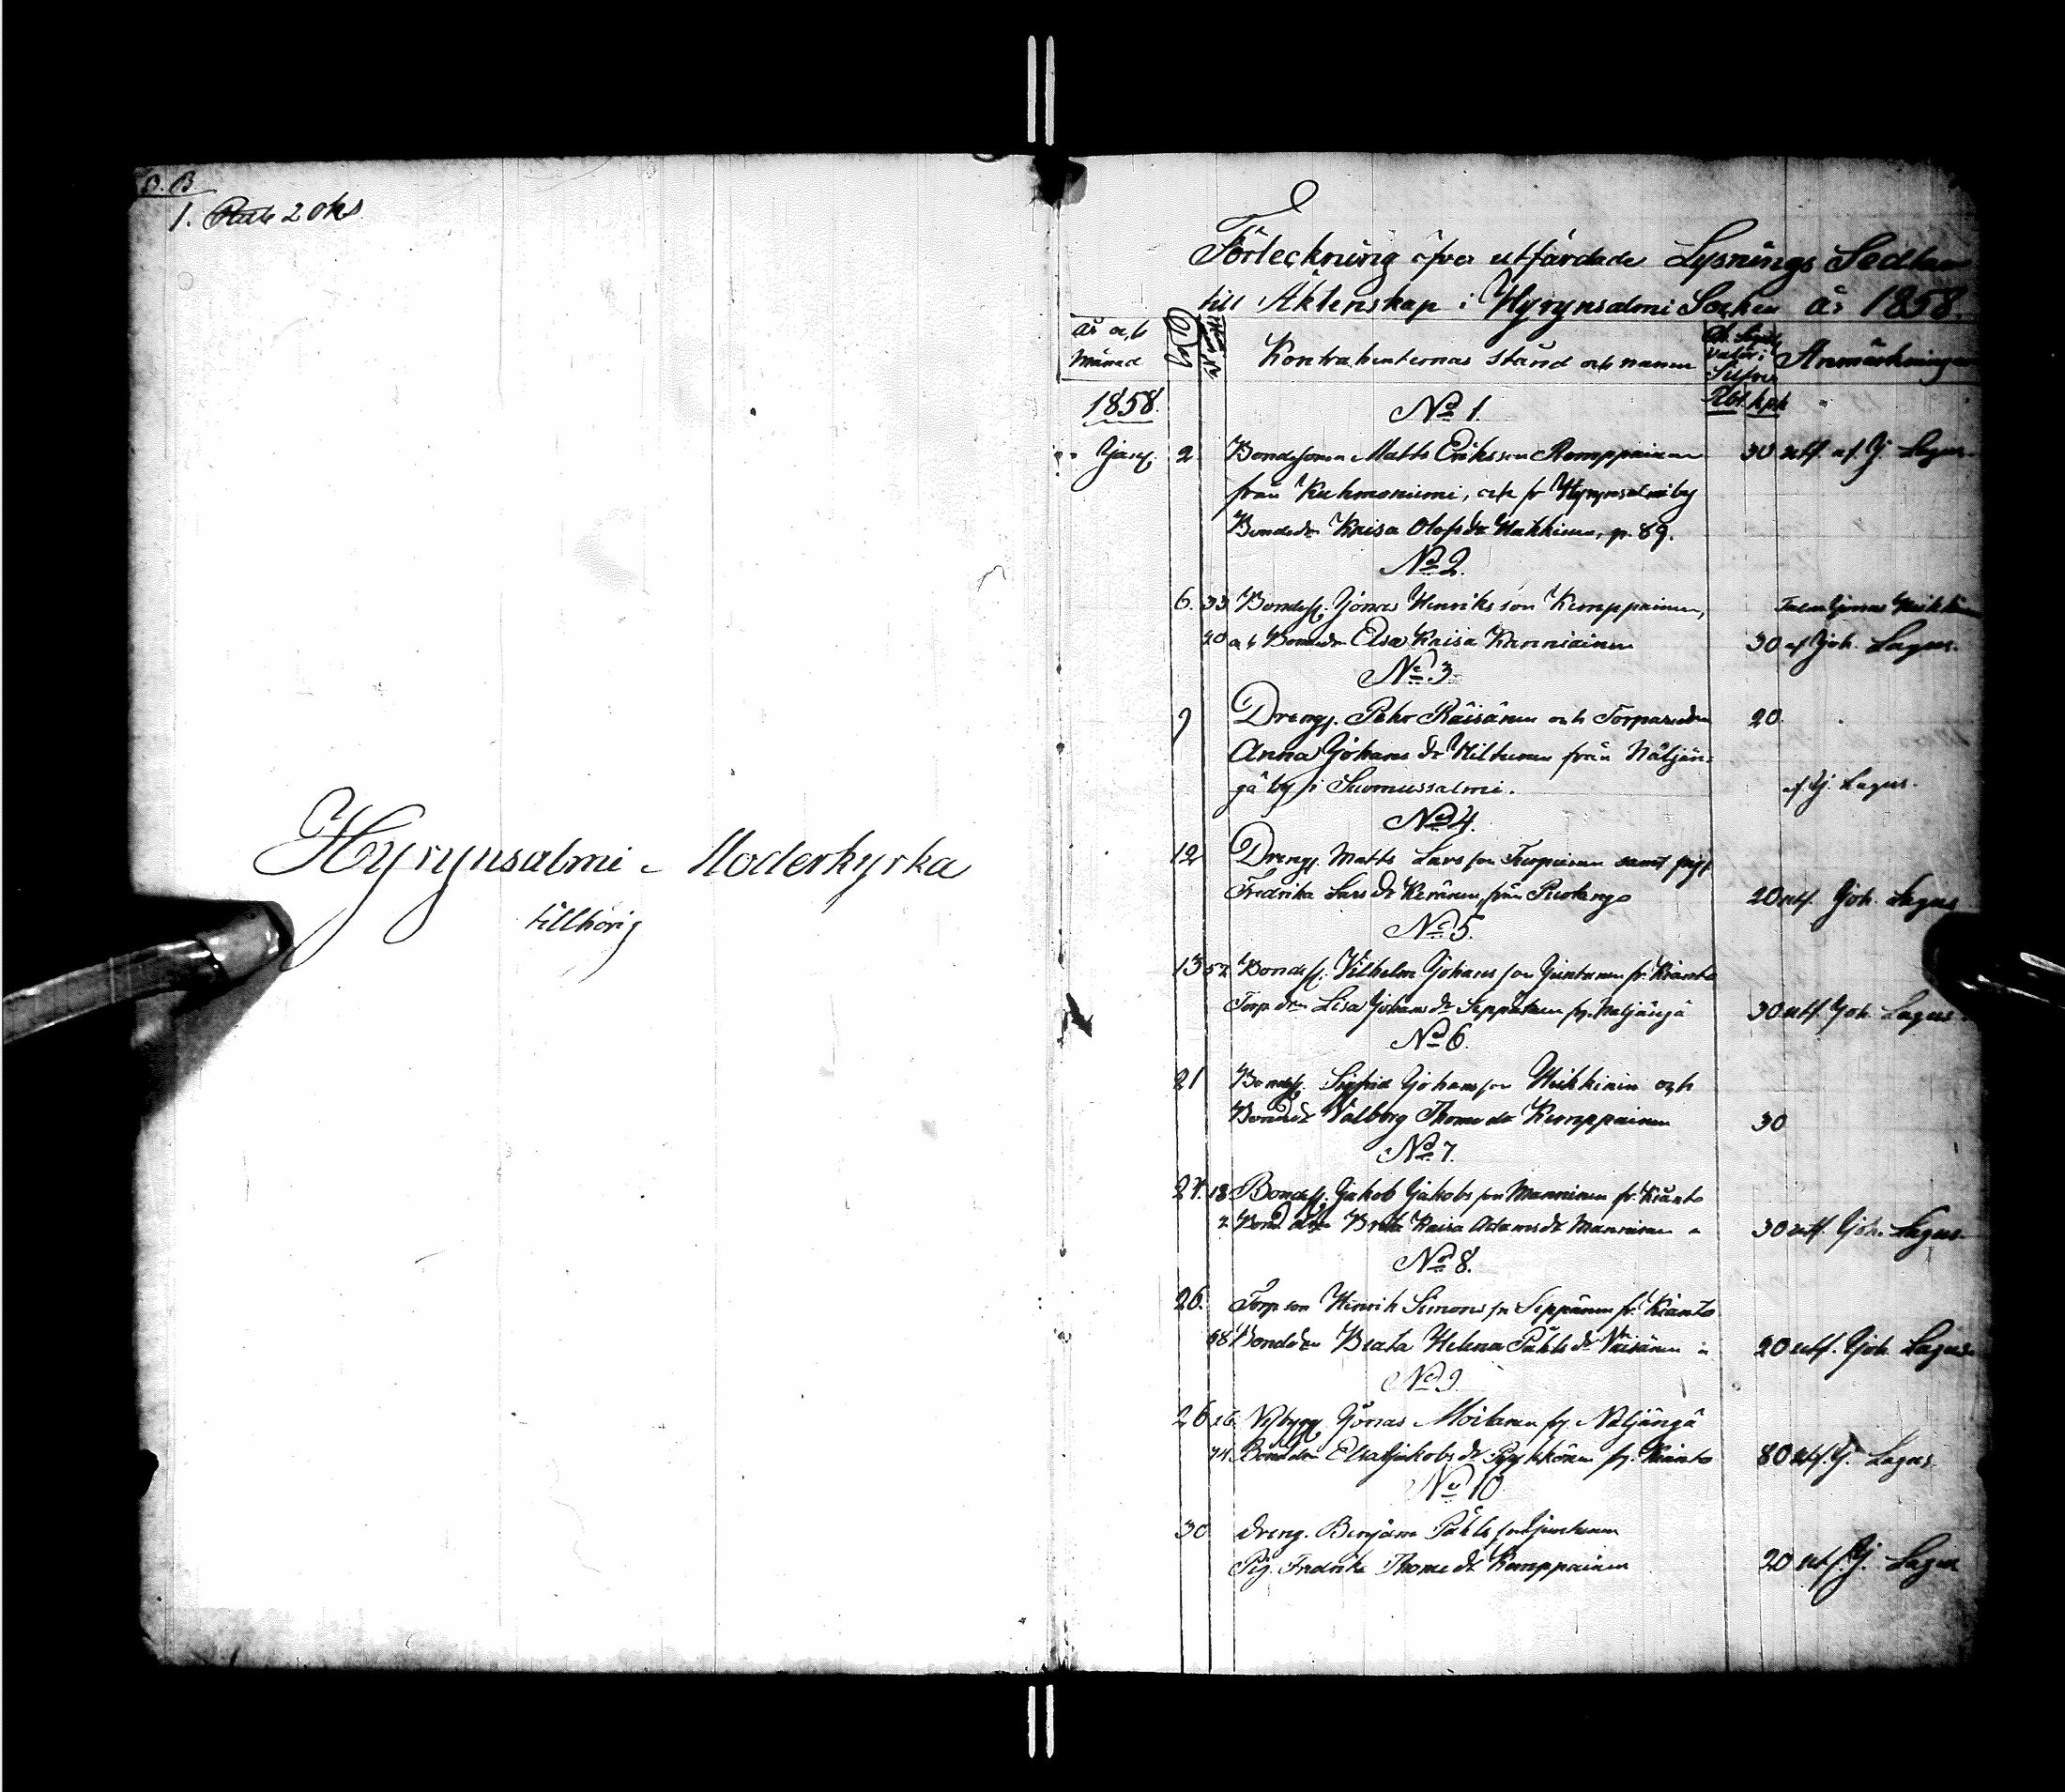 O. B.
1. 20 ks
Hyrynsalmi Moderkyrka
tillhörig
Förteckning öfver utfärdade Lysnings Sedlar
till Äktenskap i Hyrynsalmi Socken år 1858.
år och Månad
Kontrahenternas stånd och namn
Silfver
Rbl. kpk
Anmärkningar
1858.
No 1.
Janr. 2 Bondesonen Matts Eriksson Romppainen 30 utf. af J. Lagus.
från Kuhmoniemi, och fr Hyrynsalmi by
Bondedr Kaisa Olofsdr Hakkinen, p. 89.
No 2.
6. 33 Bondes. Jonas Henriksson Kemppainen,
20 och Bondedr Elsa Kaisa Kanniainen 30 af Joh. Lagus.
No 3.
9 Drengj. Petter Räisänen och Torparedr 20.
Anna Johansdr Hiltunen från Näljän-
gä by i Suomussalmi. af J. Lagus.
No 4.
12 Drengj. Matts Larsson Turpeinen samt pig.
Fredrika Larsdr Keränen från Puolango 20 utf. Joh. Lagus
No 5.
13 52 Bondes. Vilhelm Johansson Juntunen fr. Kianto
Torp.drn Lisa Johansdr Seppänen fr. Näljängä 30 utf. Joh. Lagus.
No 6.
21 Bondes. Sigfrid Johansson Heikkinen och
Bondedr Valborg Thomedr Kemppainen 30
No 7.
24. 18 Bondes. Jakob Jakobsson Manninen fr. Kianto
2 Bond drn Brita Kaisa Adamsdr Manninen " 30 utf. Joh. Lagus.
No 8.
26. Torp. son Henrik Simonsson Seppänen fr. Kianto
68 Bondedrn Beata Helena Påhlsdr Väisänen " 20 utf. Joh. Lagus.
No 9.
26 26 Nybygg. Jonas Moilanen fr. Näljängä
74 Bonddrn Elsa Jakobsdr Pyykkönen fr. Kianto 80 utf. J. Lagus
No 10
30 Dreng. Benjam Påhlsson Juntunen
Pig. Fredrika Thomedr Kemppainen 20 utf. J. Lagus